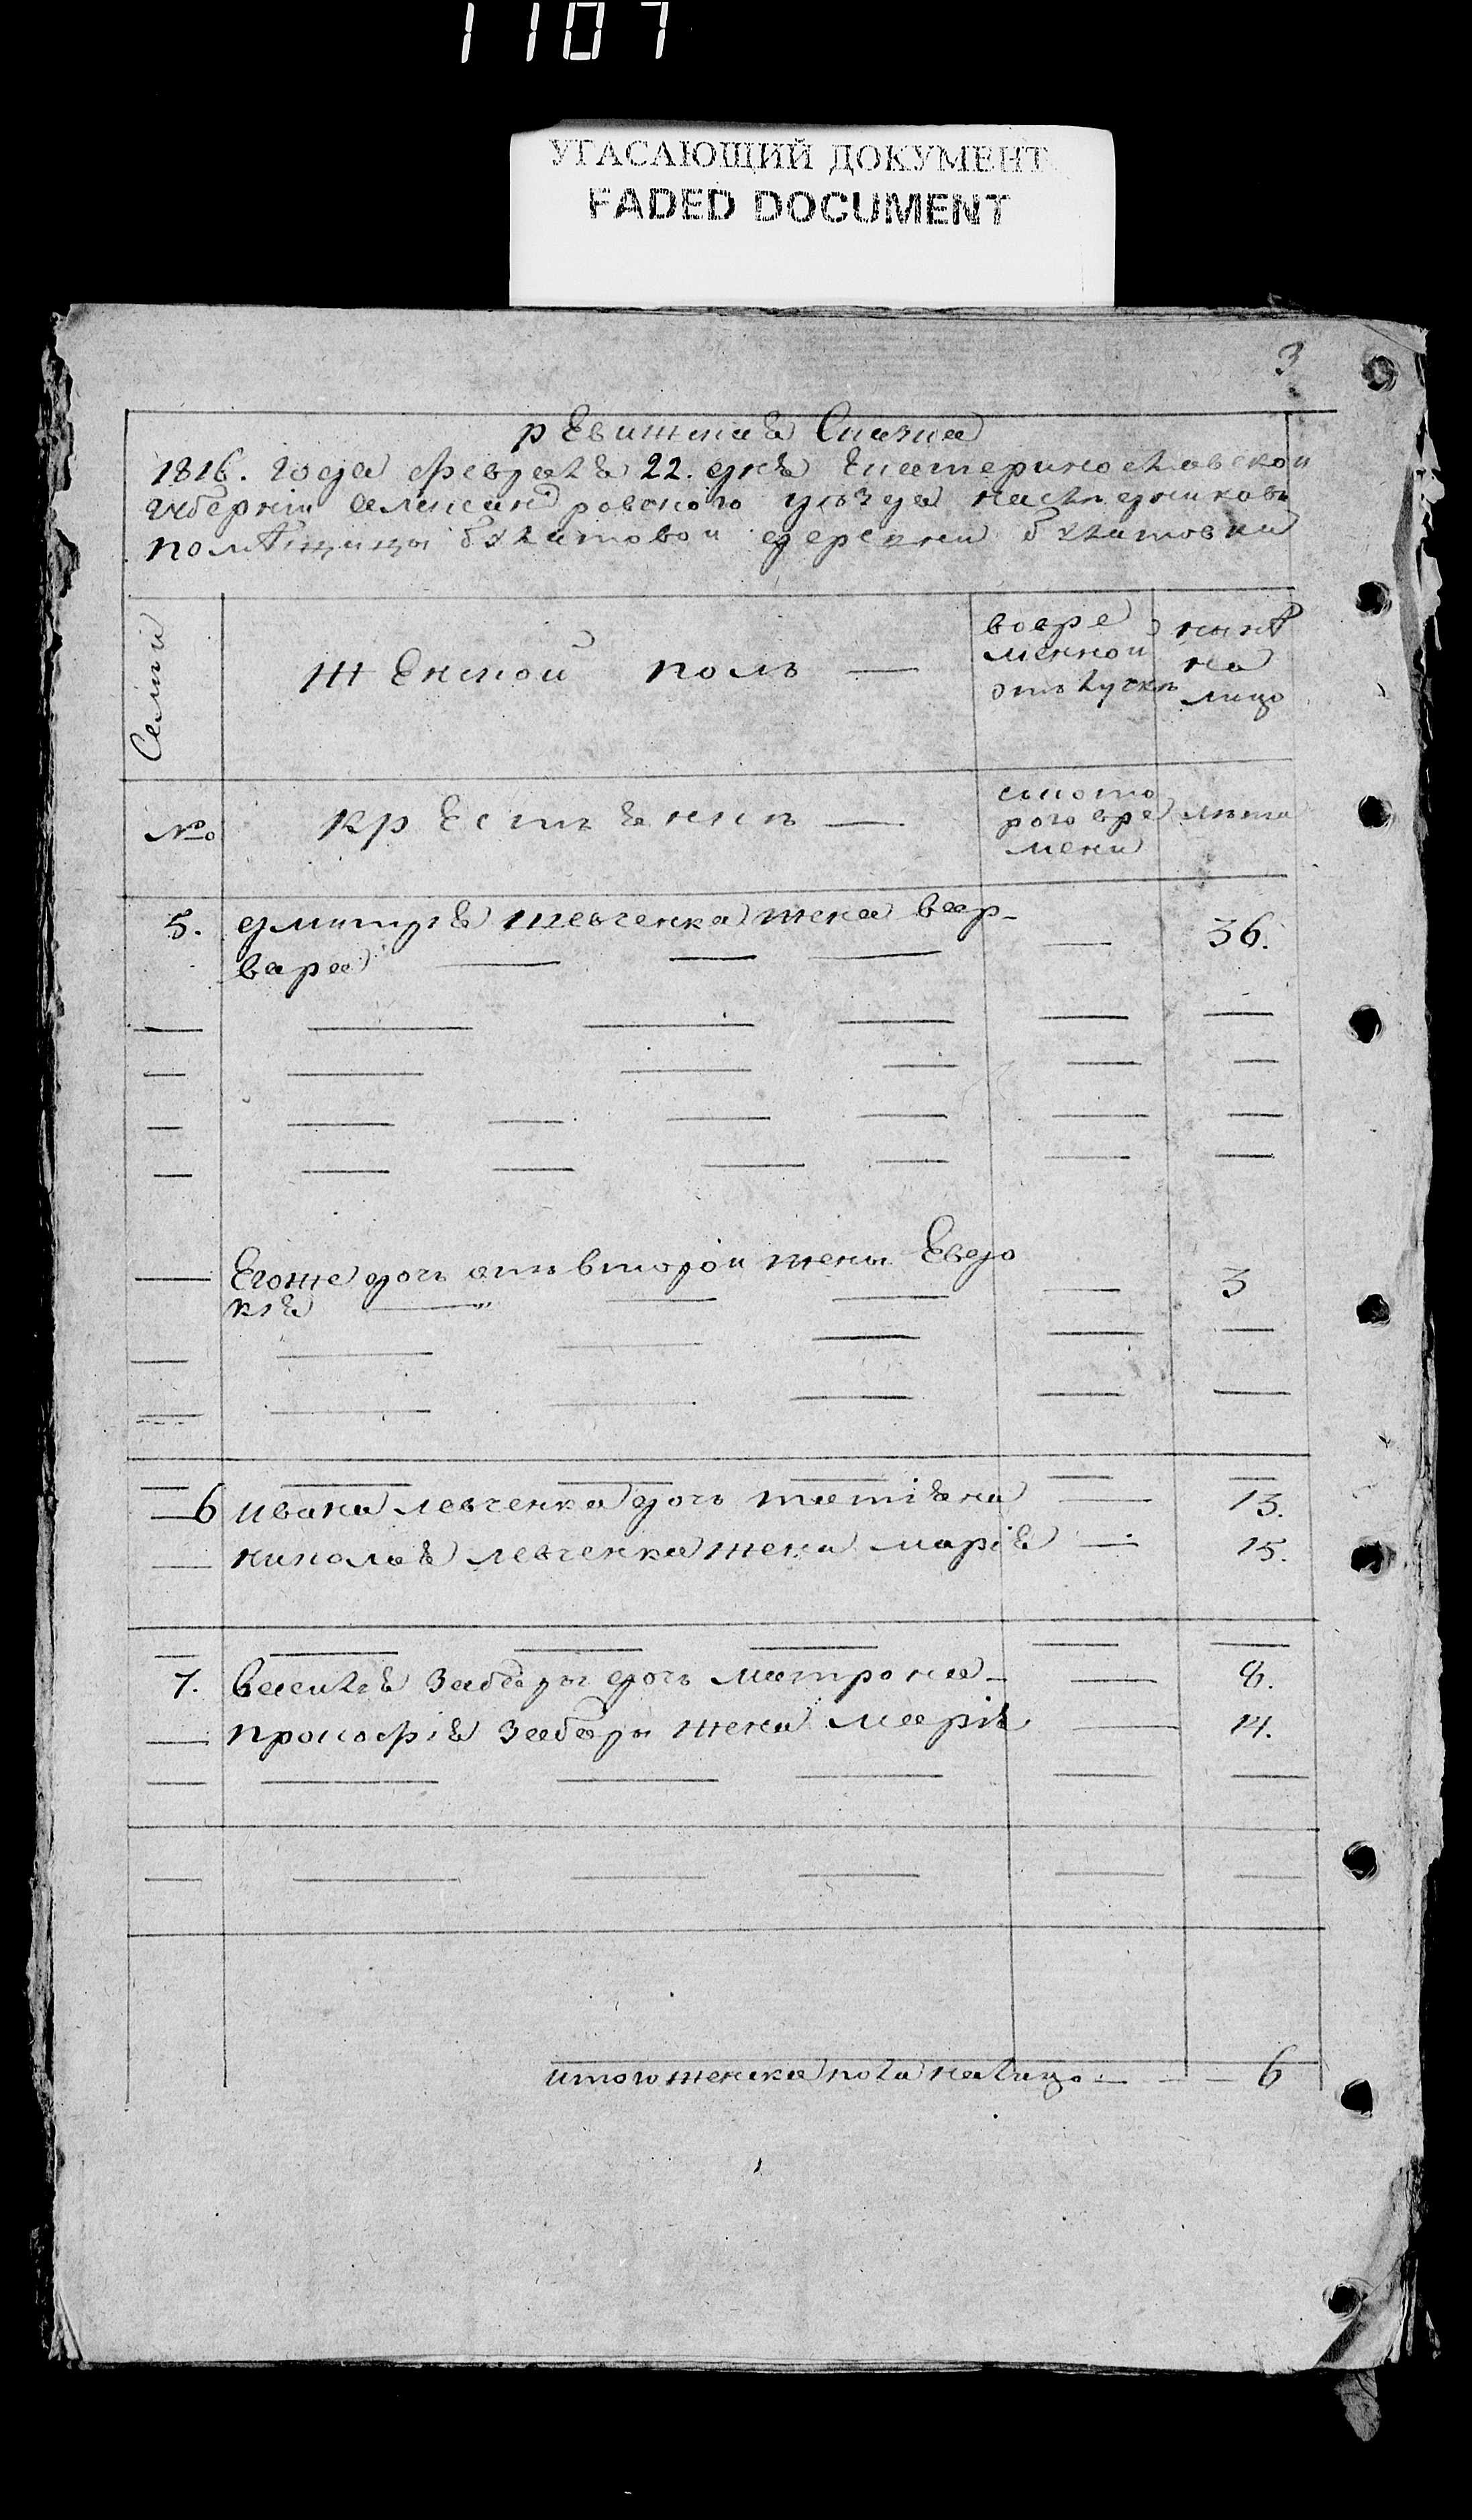 1107
УГАСАЮЩИЙ ДОКУМЕНТ
FADED DOCUMENT
3
ревижская Сказка
1816. года февраля 22. дня Екатеринославской
губернии александровского уѣзда наследниковъ
помѣщицы булатовой деревни булатовки
Семьи
женской полъ —
вовре
менной
отълучкѣ
нынѣ
на
лицо
№
крестъянкъ —
ското
рого вре
мени
лѣта
5. дмитрія шевченка жена вар-
вара — — — — 36.
Егоже дочь отъ второй жены Евдо
кія — — — — 3
6 ивана левченка дочь татіяна — 13.
николая левченка жена марія — 15.
7. василія забары дочь матрона - — 8.
прокофія забары жена марія — 14.
итого женска пола налицо — — — 6